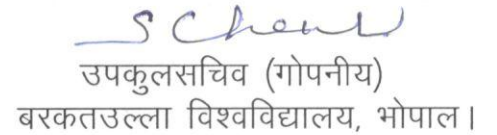 उपकुलसचिव (गोपनीय)
बरकतउल्ला विश्वविद्यालय, भोपाल।